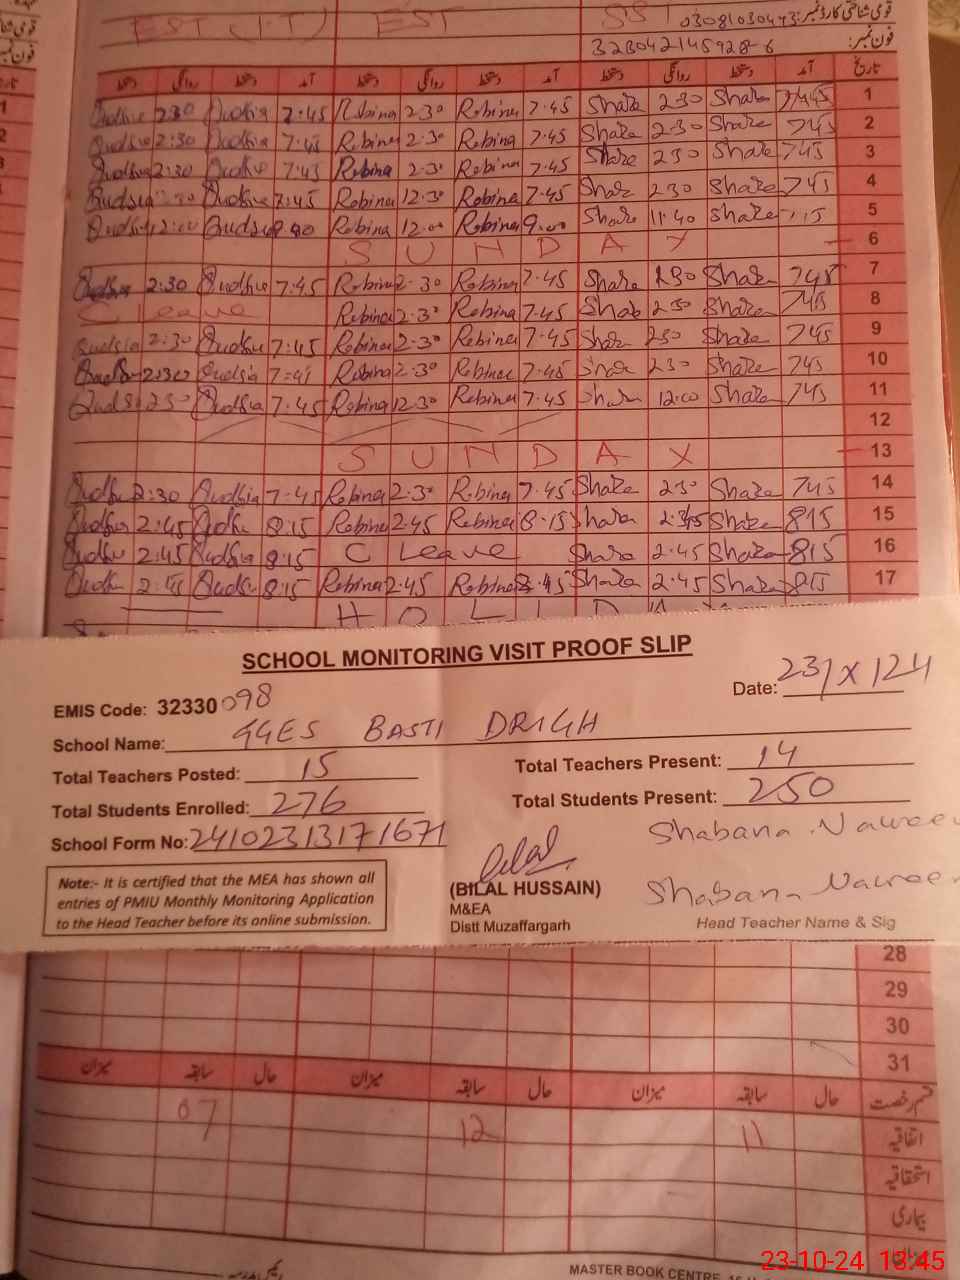 EST (I.T) EST SST
قومی شناختی کارڈ نمبر: 03081030443
فون نمبر: 323042145928-6
دستخط روانگی دستخط آمد دستخط روانگی دستخط آمد دستخط روانگی دستخط آمد تاریخ
Qudsia 2:30 Qudsia 7:45 Robina 2:30 Robina 7.45 Share 230 Share 745 1
Qudsia 2:30 Qudsia 7:45 Robina 2:30 Robina 7.45 Share 230 Share 745 2
Qudsia 2:30 Qudsia 7:45 Robina 2.30 Robina 7.45 Share 230 Share 745 3
Qudsia Qudsia 7:45 Robina 12.30 Robina 7.45 Share 230 Share 745 4
Qudsia Qudsia Robina 12.00 Robina 9.00 Share 11.40 Share 5
S U N D A Y 6
Qudsia 2:30 Qudsia 7:45 Robina 2.30 Robina 7.45 Share 230 Share 745 7
C Leave Robina 2.30 Robina 7.45 Share 230 Share 745 8
Qudsia 2:30 Qudsia 7:45 Robina 2.30 Robina 7.45 Share 230 Share 745 9
Qudsia 2:30 Qudsia Robina 2.30 Robina 7.45 Share 230 Share 745 10
Qudsia 230 Qudsia 7.45 Robina 12.30 Robina 7.45 Share 12.00 Share 745 11
12
S U N D A Y 13
Qudsia 2:30 Qudsia 7.45 Robina 2.30 Robina 7.45 Share 230 Share 745 14
Qudsia 2:45 Qudsia 8:15 Robina 2.45 Robina 8.15 Share Share 815 15
Qudsia 2:45 Qudsia 8:15 C Leave Share 2.45 Share 815 16
Qudsia 2:45 Qudsia 8:15 Robina 2.45 Robina Share 2.45 Share 815 17
H O L I D A Y
SCHOOL MONITORING VISIT PROOF SLIP
EMIS Code: 32330098 Date: 23/X/24
School Name: GGES BASTI DRIGH
Total Teachers Posted: 15 Total Teachers Present: 14
Total Students Enrolled: 276 Total Students Present: 250
School Form No: 24102313171671 Shabana Nawreen
Note:- It is certified that the MEA has shown all
entries of PMIU Monthly Monitoring Application
to the Head Teacher before its online submission.
Bilal
(BILAL HUSSAIN)
M&EA
Distt Muzaffargarh
Shabana Nawreen
Head Teacher Name & Sig
28
29
30
31
میزان سابقہ حال میزان سابقہ حال میزان سابقہ حال قسم رخصت
07 12 11 اتفاقیہ
استحقاقیہ
بیماری
MASTER BOOK CENTRE
23-10-24 13:45